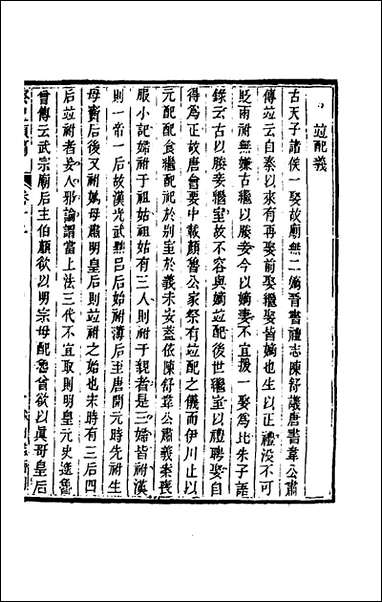 竝配義
古天子諸侯一娶故廟無二嫡晉書禮志陳舒議唐書韋公肅
傳竝云自秦以來有再娶前娶繼娶皆嫡也生以正禮没不可
貶兩祔無嫌古繼以媵妾今以嫡妻不宜援一娶爲比朱子語
錄云古以媵妾繼室故不容與嫡竝配後世繼室以禮聘娶自
得爲正故唐會要中載顔魯公家祭有竝配之儀而伊川止以
元配配食繼配祀於別室於義未安蓋依陳舒韋公肅義案喪
服小記婦祔于祖姑祖姑有三人則祔于親者是三婦皆祔漢
則一帝一后故漢光武黜呂后始祔薄后至唐開元時先祔生
母竇后後又祔嫡母肅明皇后則竝祔之始也宋時有三后四
后竝祔者妄人邪論謂當上法三代不宜取則明皇元史逯魯
曾傳云武宗廟后主伯顔欲以明宗母配魯曾欲以眞哥皇后